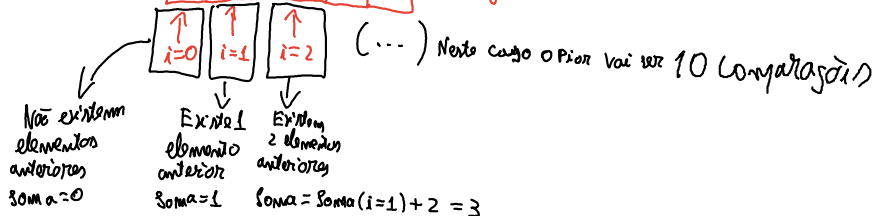 i=0 i=1 i=2 (...) Neste caso o Pior vai ser 10 comparações
Não existem
elementos
anteriores
soma=0
Existe 1
elemento
anterior
soma=1
Existem
2 elementos
anteriores
soma = soma(i=1)+2 = 3